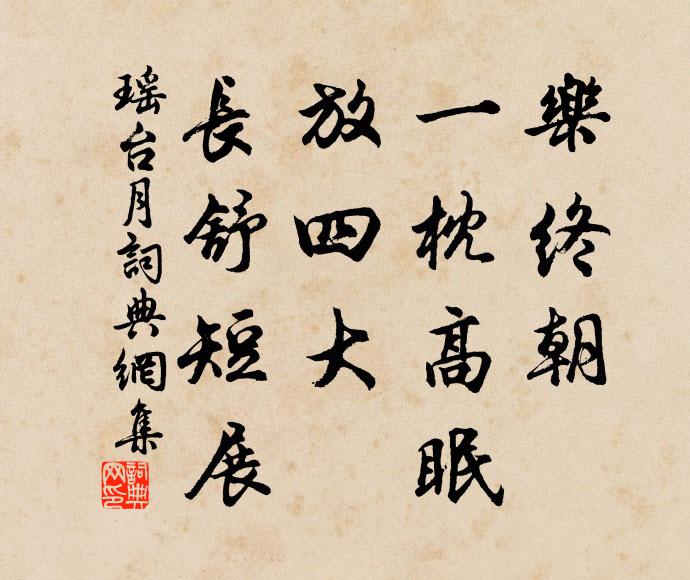 樂終朝
一枕高眠
放四大
長舒短展
瑶台月詞典網集
詞典网印